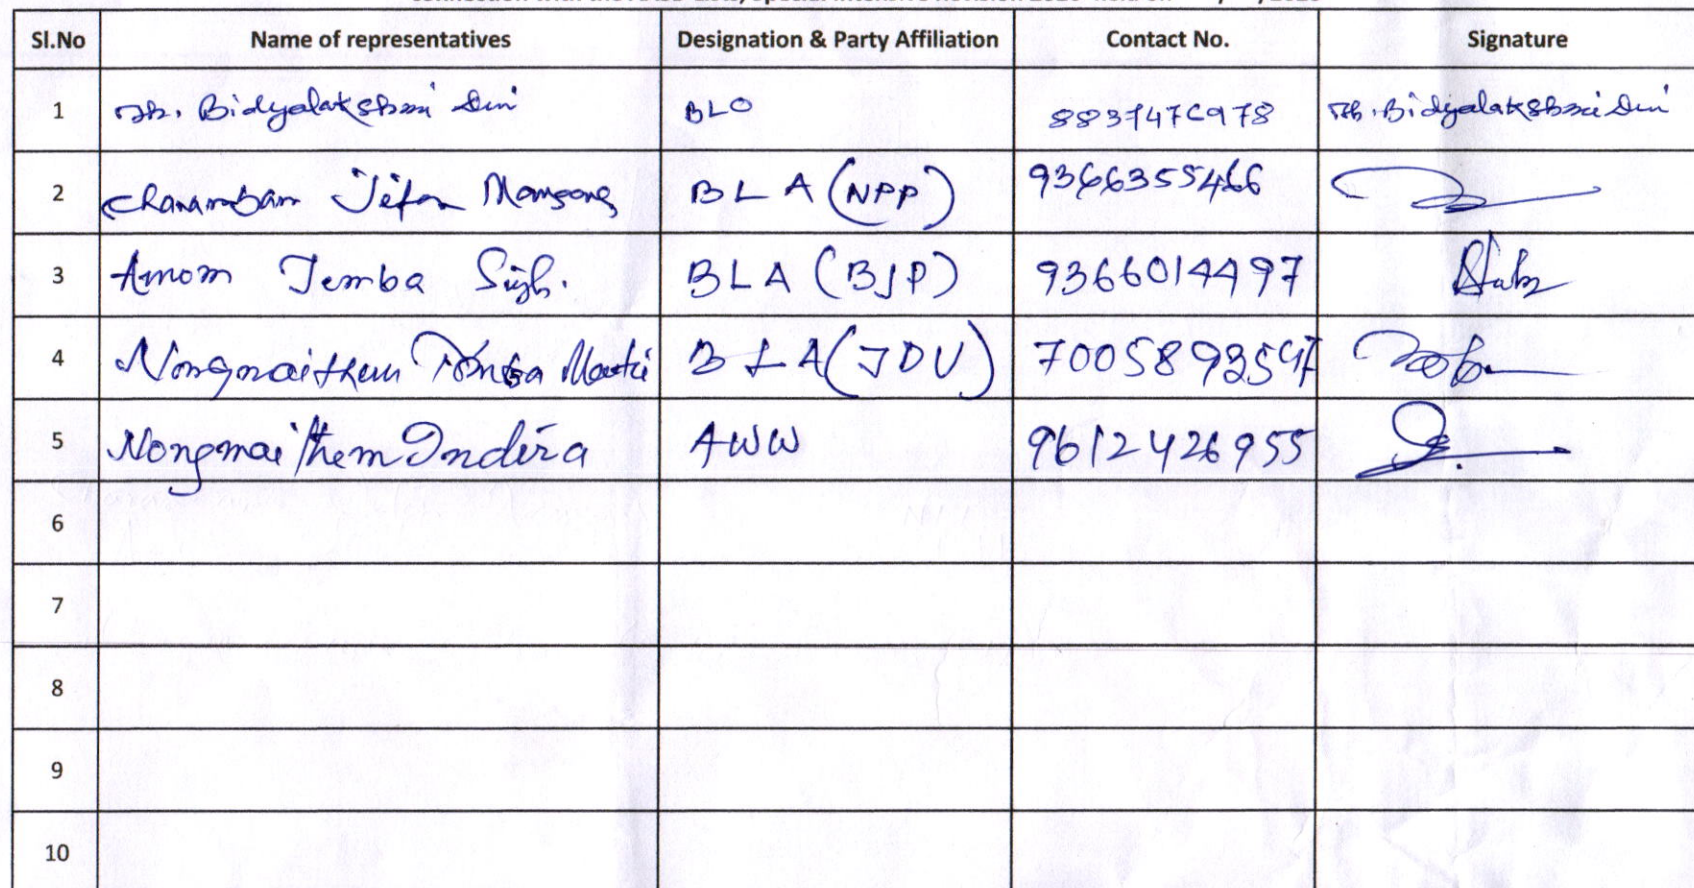 Sl.No Name of representatives Designation & Party Affiliation Contact No. Signature
1 Bidyalakshmi Devi BLO Bidyalakshmi Devi
2 Chanambam BLA (NPP) 9366355466
3 Amom Temba Singh. BLA (BJP) 9366014497
4 Nongmaithem Tomba BLA (JDU)
5 Nongmaithem Indira AWW 9612426955
6
7
8
9
10